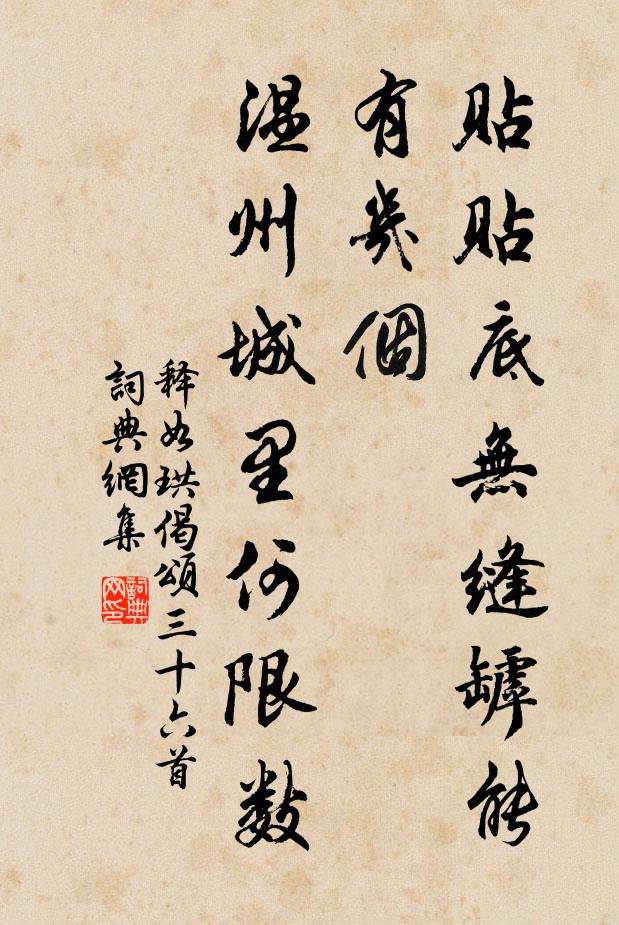 貼貼底無縫罅能
有幾個
温州城里何限數
释如珙偈頌三十六首
詞典網集
詞典网印